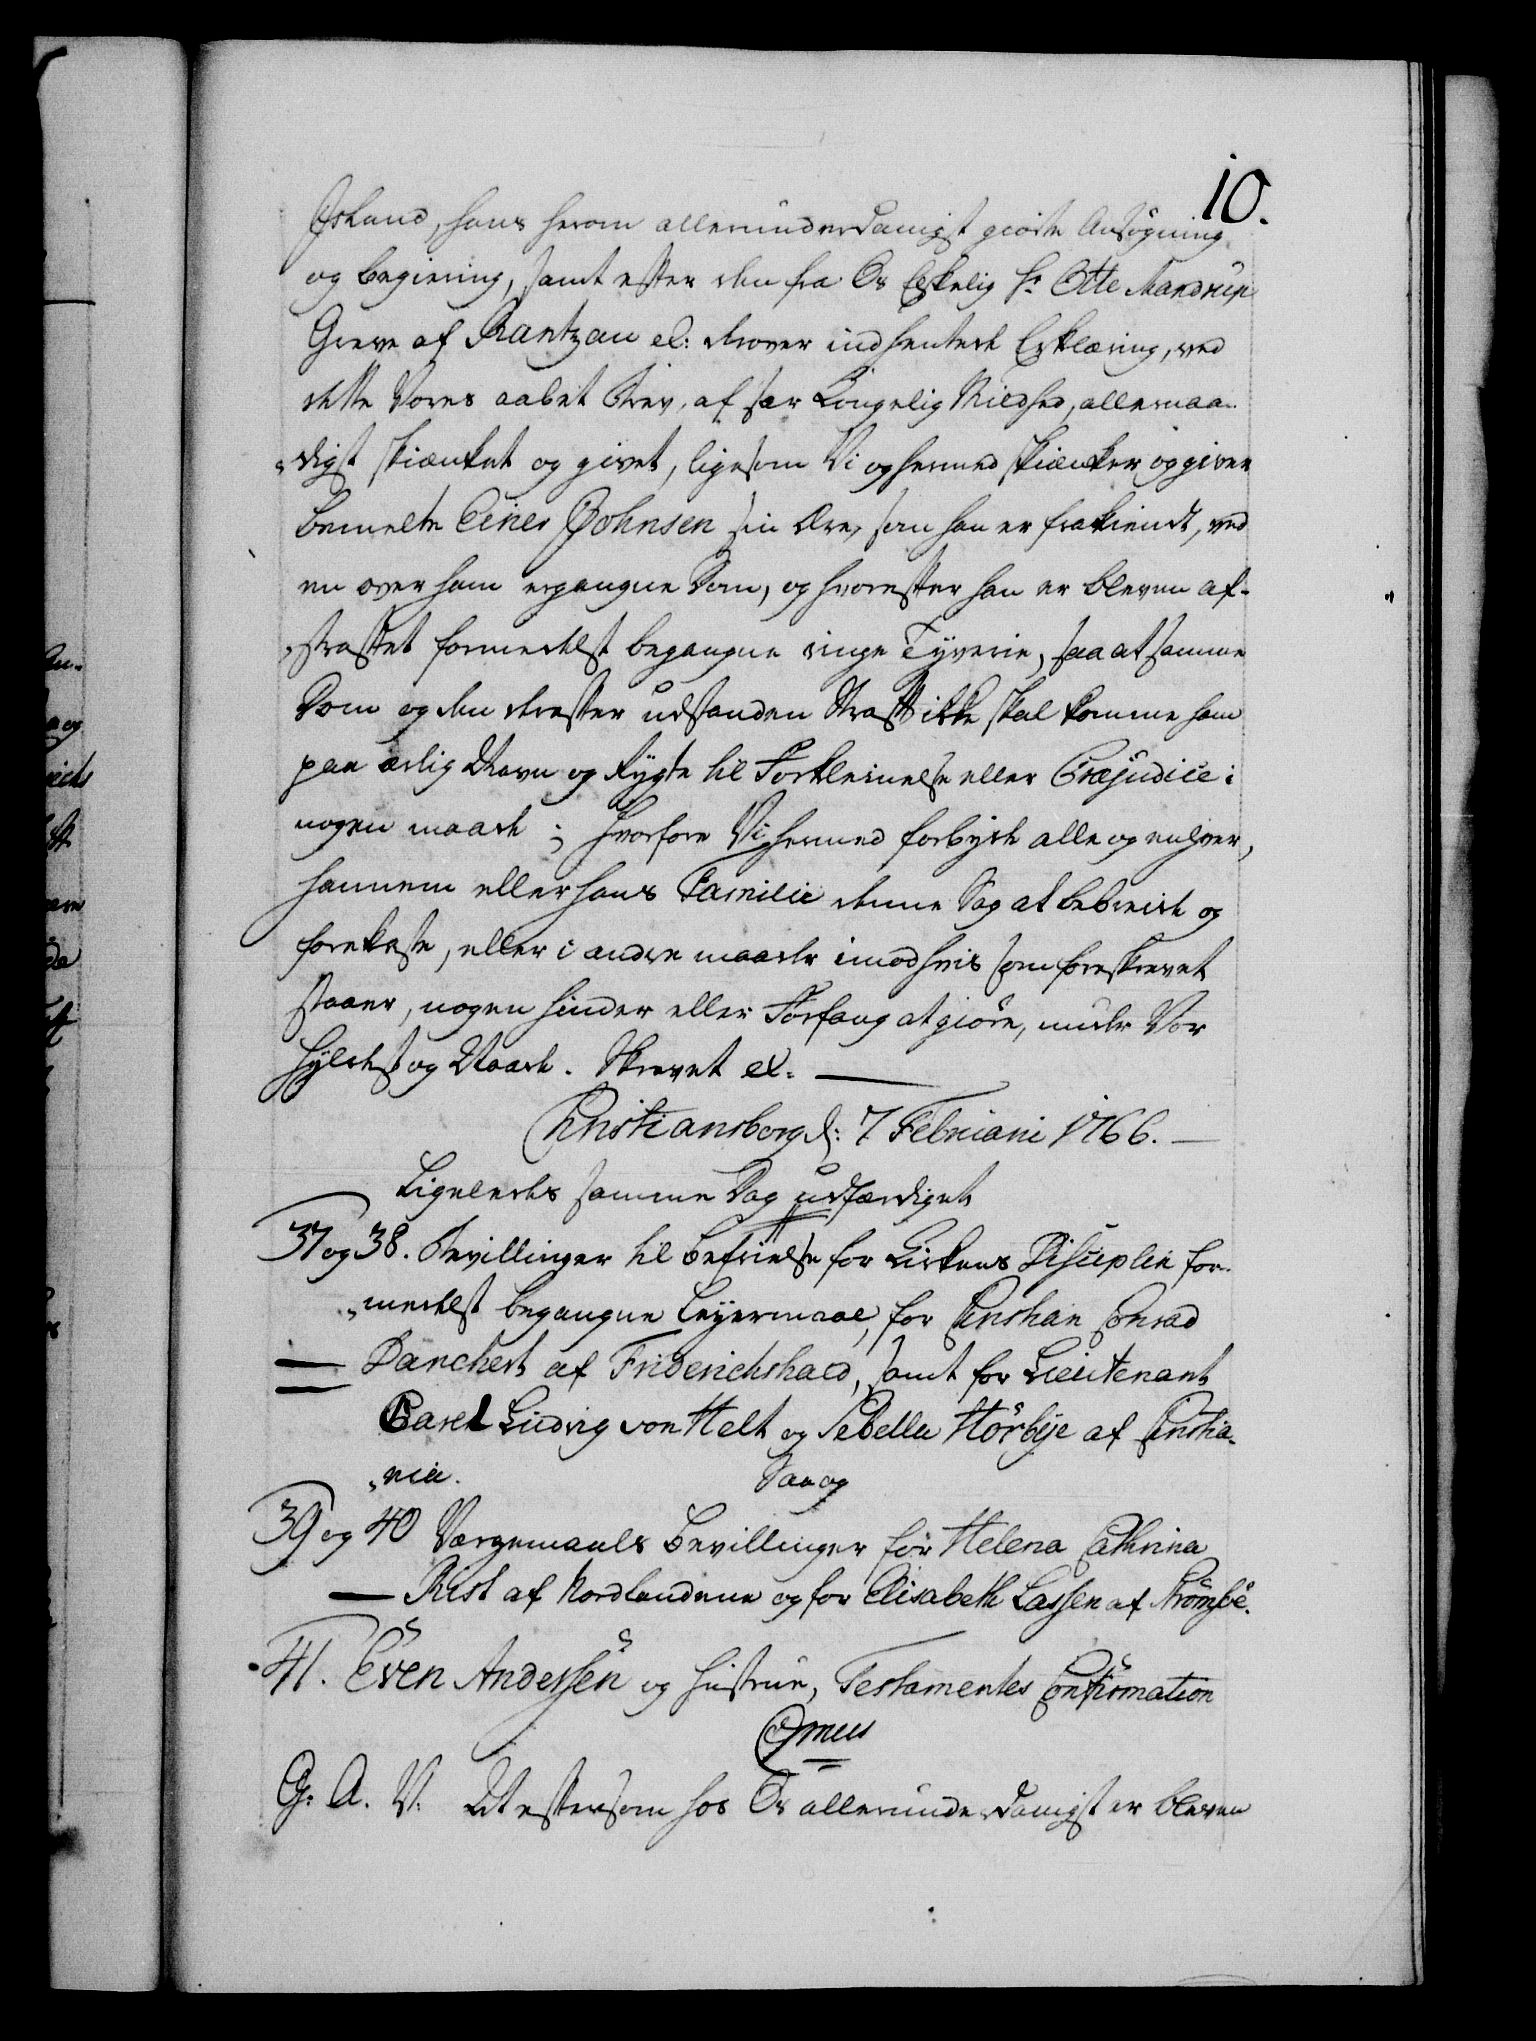 10.
Iisland, hans herom allerunderdanigst giorte Ansøgning
og begiering, samt efter den fra Os Elskelig Hr Otte Mandrup
Greve af Rantzau etc: derover indhentede Erklæring, ved
dette Vores aabet Brev, af sær Kongelig Mildhed, allernaa-
„digst skienket og givet, ligesom Vi og hermed skienker og giver
bemelte Einer Johnsen sin Ære, som han er frakiendt, ved
en over ham ergangne Dom, og hvorefter han er bleven af-
„straffet formedelst begangne ringe Tyverie, saa at samme
Dom og den derefter udstanden Straff ikke skal komme ham
paa ærlig Navn og Rygte til Forkleinelse eller Præjudice i
nogen maade; hvorfore Vi hermed forbyde alle og enhver,
hannem eller hans Familie denne Sag at bebreide og
forekaste, eller i andre maader imod hvis som foreskrevet
staaer, nogen hinder eller Forfang at giøre, under Vor
Hyldest og Naade. Skrevet etc.
Christiansborg d: 7 Februarii 1766.
Ligeledes samme Dag udfærdiget
37 og 38. Bevillinger til befrielse for Kirkens Disciplin for-
„medelst begangne Leyermaal, for Christian Conrad
Danchert af Friderichshald, samt for Lieutenant
Carel Ludvig von Helt og Sebella Hörbye af Christia-
„nia. Saa og
39 og 40 Værgemaals bevillinger for Helena Cathrina
Rist af Nordlandene og for Elisabeth Lassen af Strömsöe.
41. Even Andersen og Hustrue, Testamentes Confirmation
Omnes
G: A. V: At eftersom hos Os allerunderdanigst er bleven